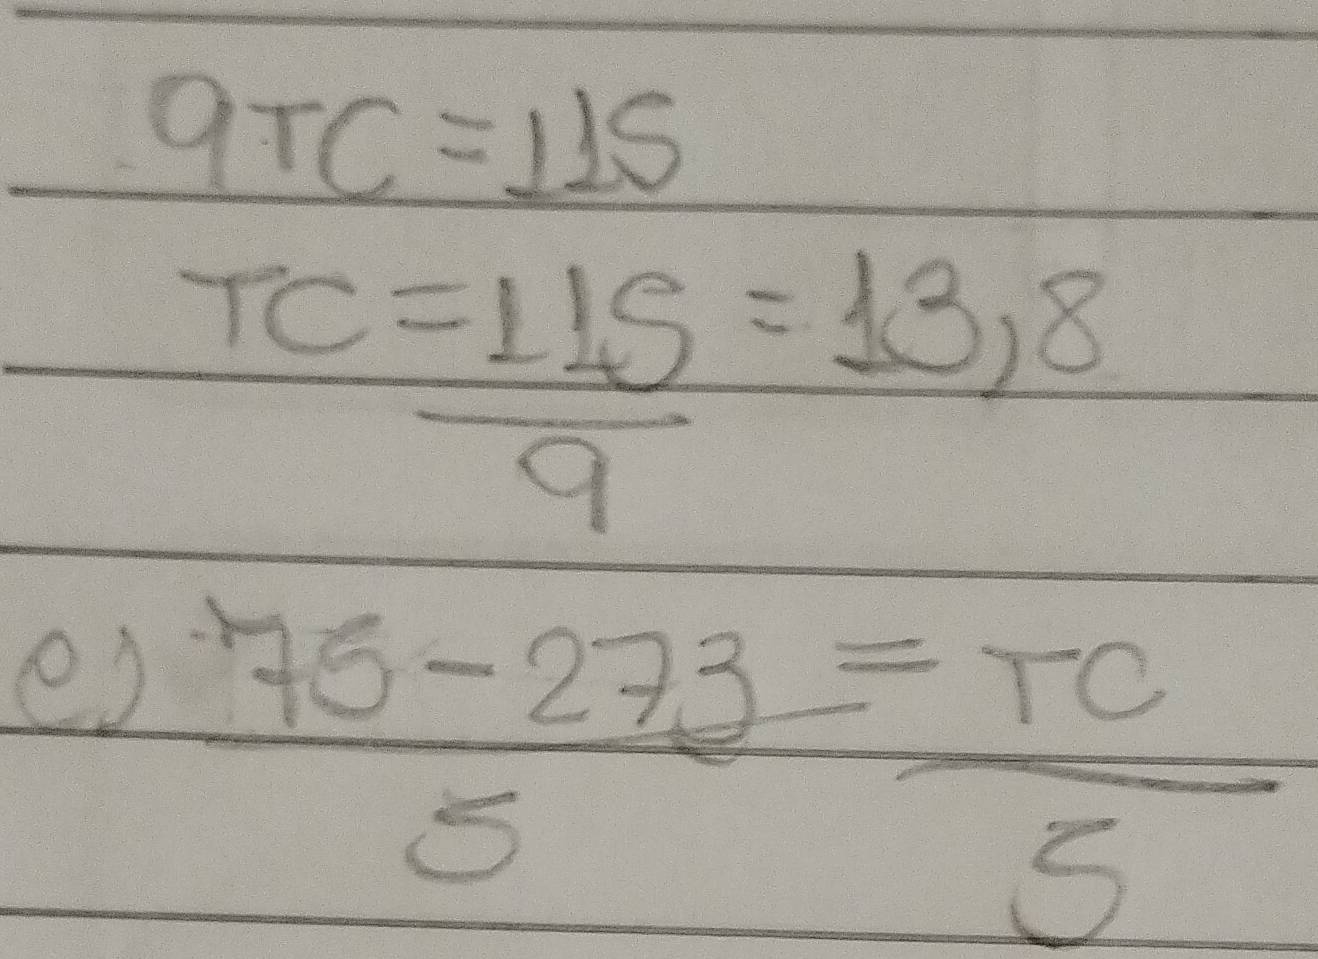 9TC = 115
TC = 115 = 13,8
9
e) 75 - 273 = TC
5 5